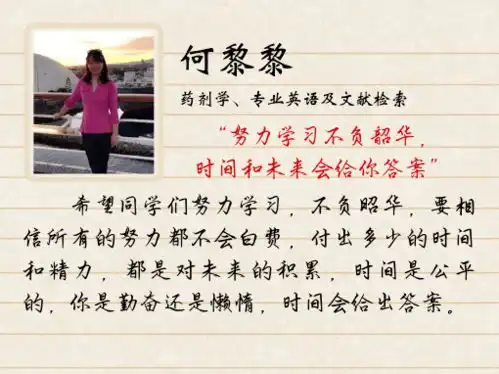 何黎黎
药剂学、专业英语及文献检索
“努力学习不负韶华，
时间和未来会给你答案”
希望同学们努力学习，不负昭华，要相
信所有的努力都不会白费，付出多少的时间
和精力，都是对未来的积累，时间是公平
的，你是勤奋还是懒惰，时间会给出答案。